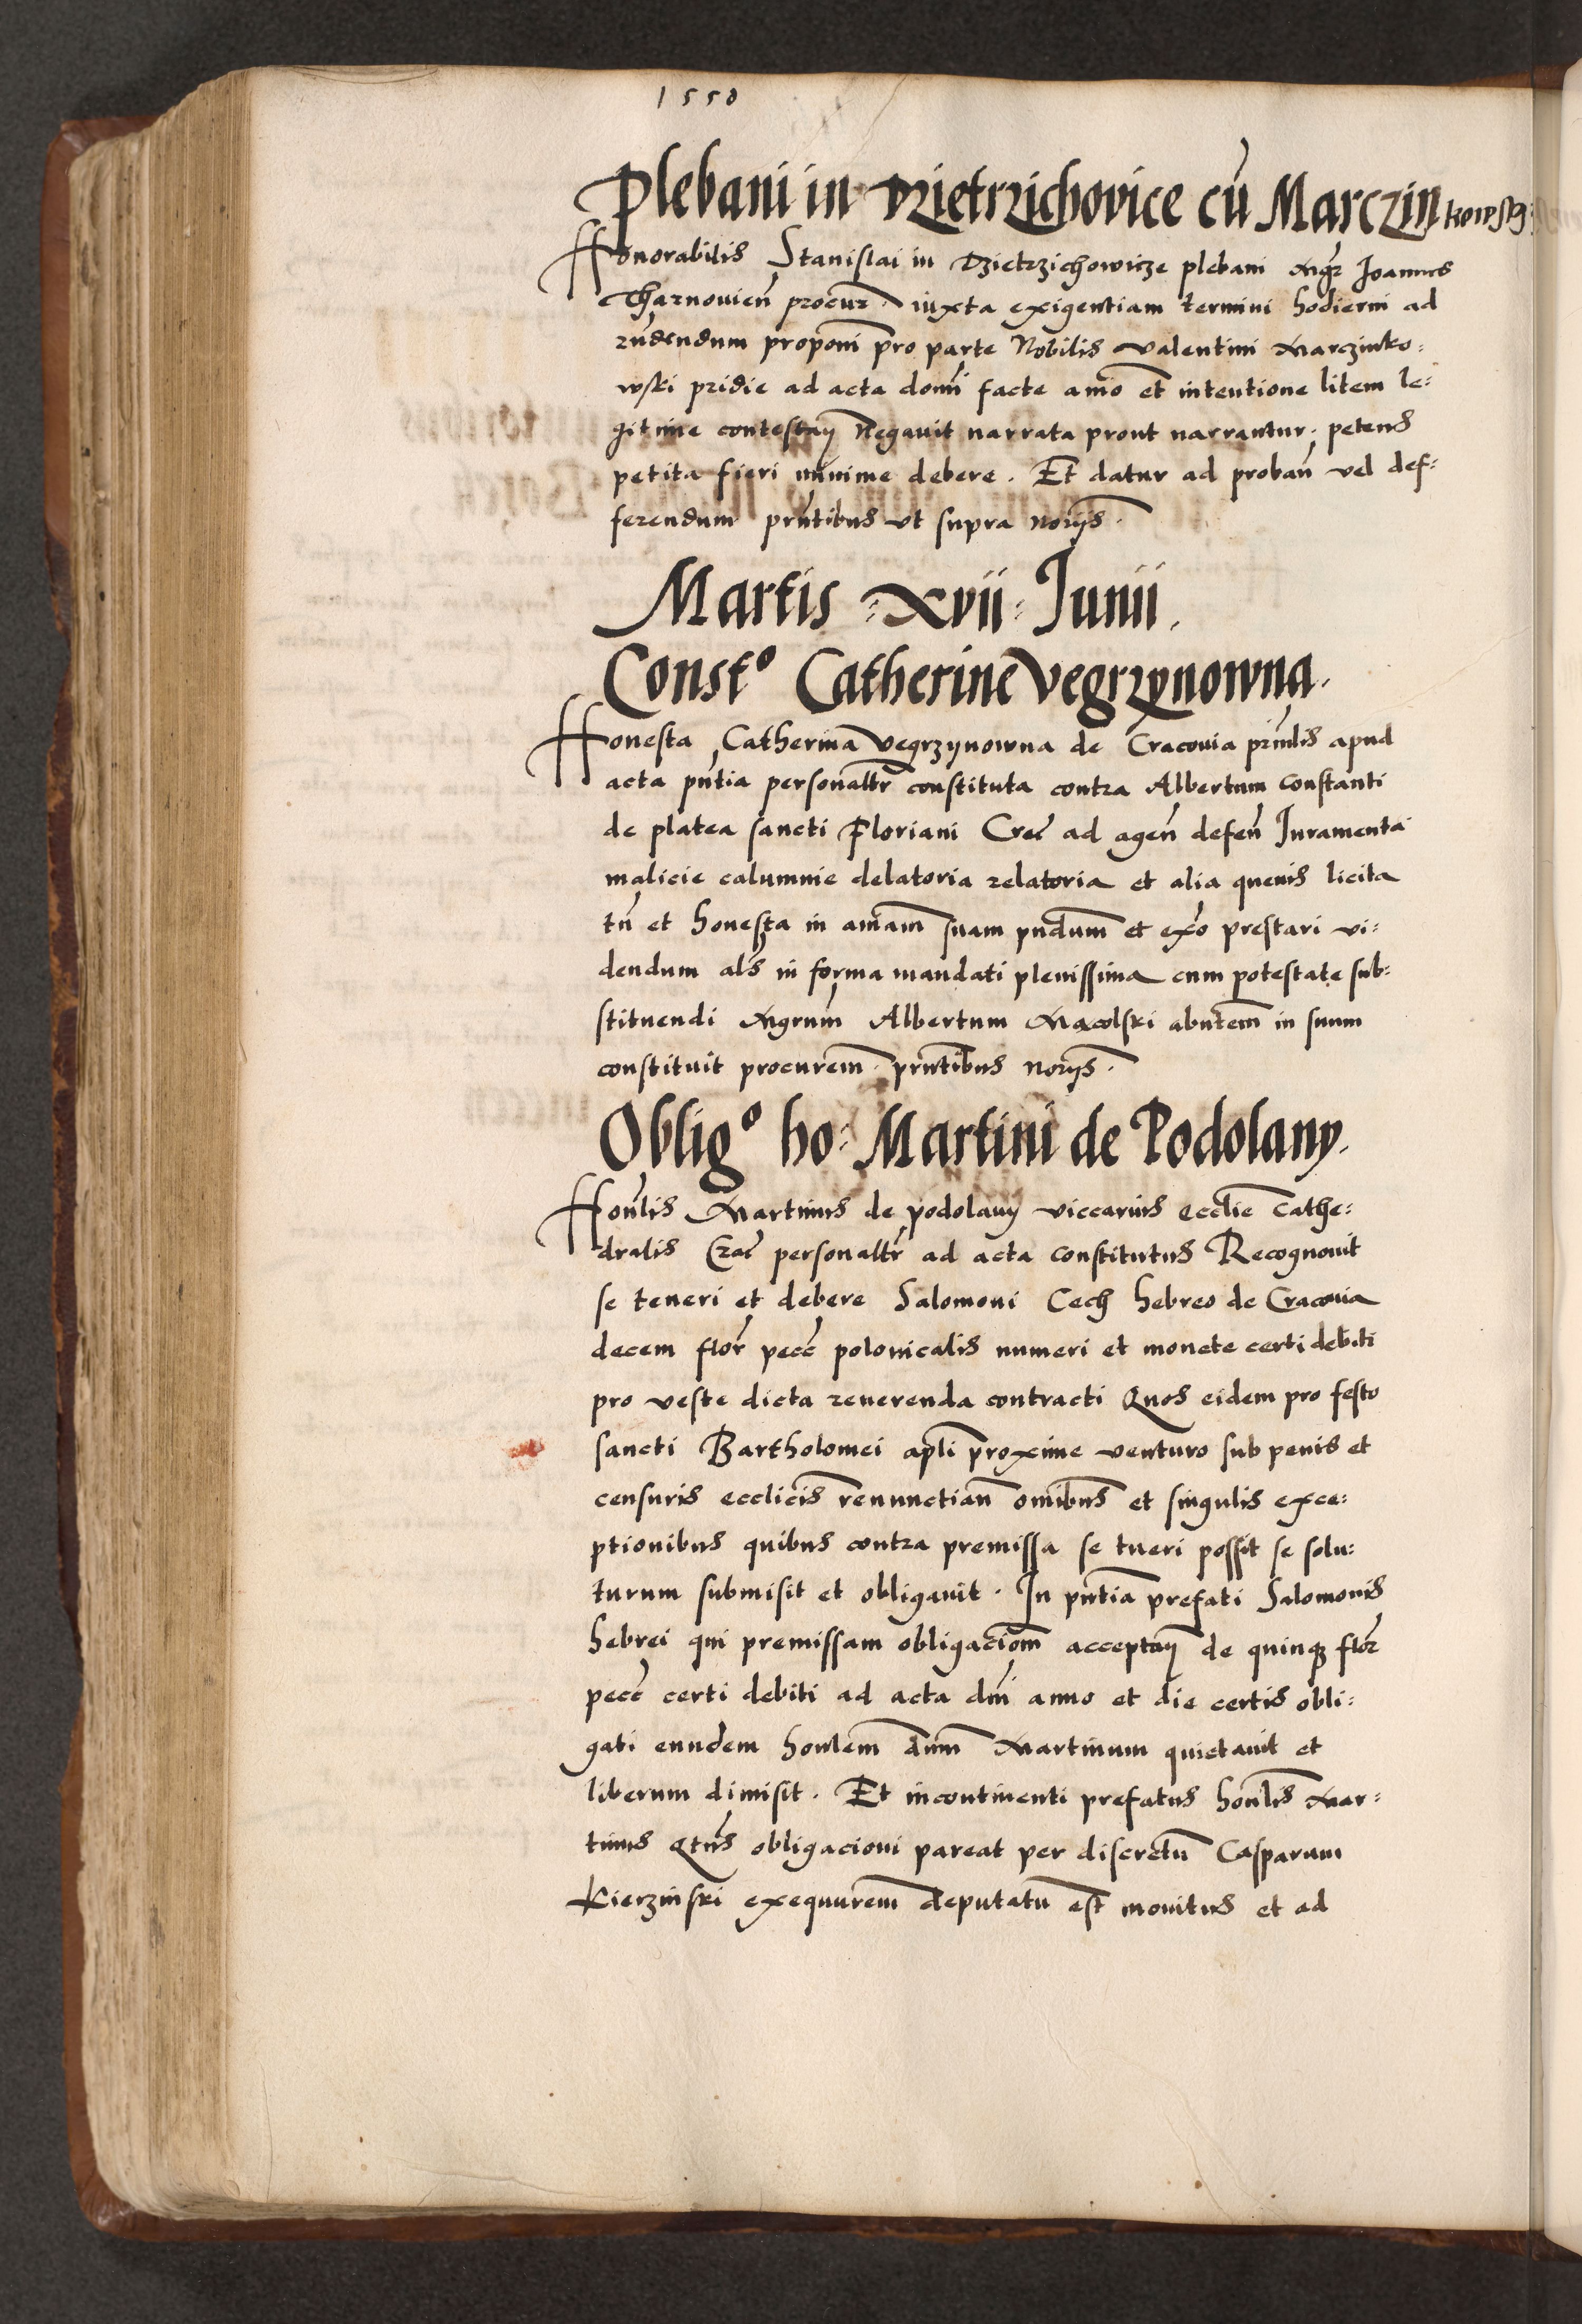 1550
Plebani in Dzietrzichovice cū Marczinkowski
Honorabilis Stanislai in Dzietrzichowicze plebani Mgr̄ Joannes
Tharnovien̄ procur̄. iuxta exigentiam termini hodierni ad
rn̄dendum proponi pro parte Nobilis Valentini Marczinko=
wski pridie ad acta domī facte an̄io et intentione litem le=
gitime contestan̄ Negavit narrata prout narrantur. petens
petita fieri minime debere. Et datur ad proban̄ vel def=
ferendum pn̄tibus ut supra nor̄ijs.
Martis =xvii= Junii.
Constº Catherine Vegrzynowna.
Honesta Catherina Vegrzynowna de Cracovia apud
acta pn̄tia personal̄r constituta contra Albertum Constanti
de platea sancti Floriani Crac̄ ad agen̄ defen̄ Juramenta
malicie calumnie delatoria relatoria et alia quevis licita
tn̄ et honesta in an̄iam suam pn̄dum et prestari vi=
dendum al̄s in forma mandati plenissima cum potestate sub=
stituendi Mgrum̄ Albertum Macolski abn̄tem in suum
constituit procur̄em. pn̄tibus nor̄ijs.
Obligº ho= Martini de Podolany.
Hon̄lis Martinus de podolany viccarius eccl̄ie Cathe=
dralis Crac̄ personal̄r ad acta constitutus Recognovit
se teneri et debere Salomoni Cech hebreo de Cracovia
decem flor̄ pecc̄ polonicalis numeri et monete certi debiti
pro veste dicta reverenda contracti Quos eidem pro festo
sancti Bartholomei ap̄li proxime venturo sub penis et
censuris eccl̄icis renunctian̄ om̄ibus et singulis exce=
ptionibus quibus contra premissa se tueri possit se solu=
turum submisit et obligavit. In pn̄tia prefati Salomonis
hebrei qui premissam obligaciom̄ acceptan̄ de quinqȝ flor̄
pecc̄ certi debiti ad acta dn̄i anno et die certis obli=
gati eundem hon̄lem dn̄m Martinum quietavit et
liberum dimisit. Et incontinenti prefatus hon̄lis Mar=
tinus q̄tus obligacioni pareat per discretū Casparum
Kierzinski exequur̄em deputatū est monitus et ad